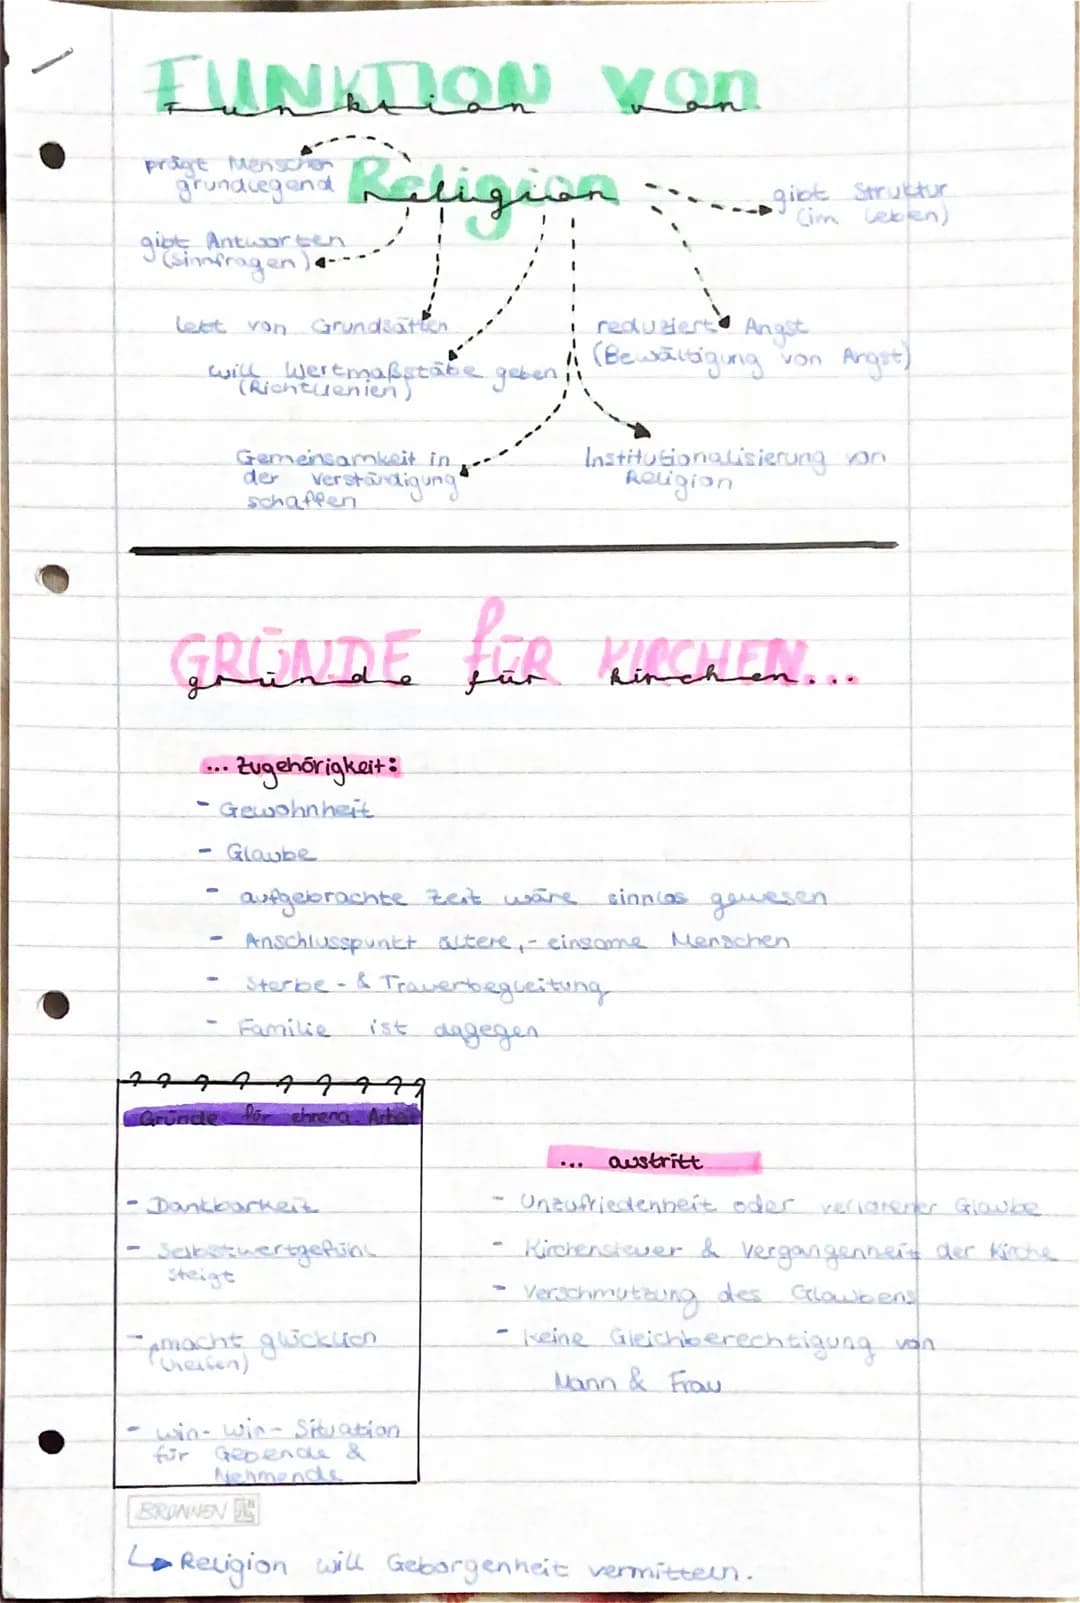 FUNKTION von
Funktion von
Religion
Religion
prägt Menschen
grundlegend
gibt Struktur
(im Leben)
gibt Antworten
(Sinnfragen)
lebt von Grundsätzen
reduziert Angst
(Bewältigung von Angst)
will Wertmaßstäbe geben
(Richtlienien)
Gemeinsamkeit in
der Verständigung
schaffen
Institutionalisierung von
Religion
GRÜNDE für KIRCHEN...
gründe für kirchen...
... Zugehörigkeit:
- Gewohnheit
- Glaube
- aufgebrachte Zeit wäre sinnlos gewesen
- Anschlusspunkt ältere,- einsame Menschen
- Sterbe- & Trauerbegleitung
- Familie ist dagegen
Gründe für ehrena. Arbeit
- Dankbarkeit
- Selbstwertgefühl
steigt
- macht glücklich
(helfen)
- win-win-Situation
für Gebende &
Nehmende
... austritt
- Unzufriedenheit oder verlorener Glaube
- Kirchensteuer & Vergangenheit der Kirche
- Verschmutzung des Glaubens
- keine Gleichberechtigung von
Mann & Frau
BRUNNEN
↳ Religion will Geborgenheit vermitteln.